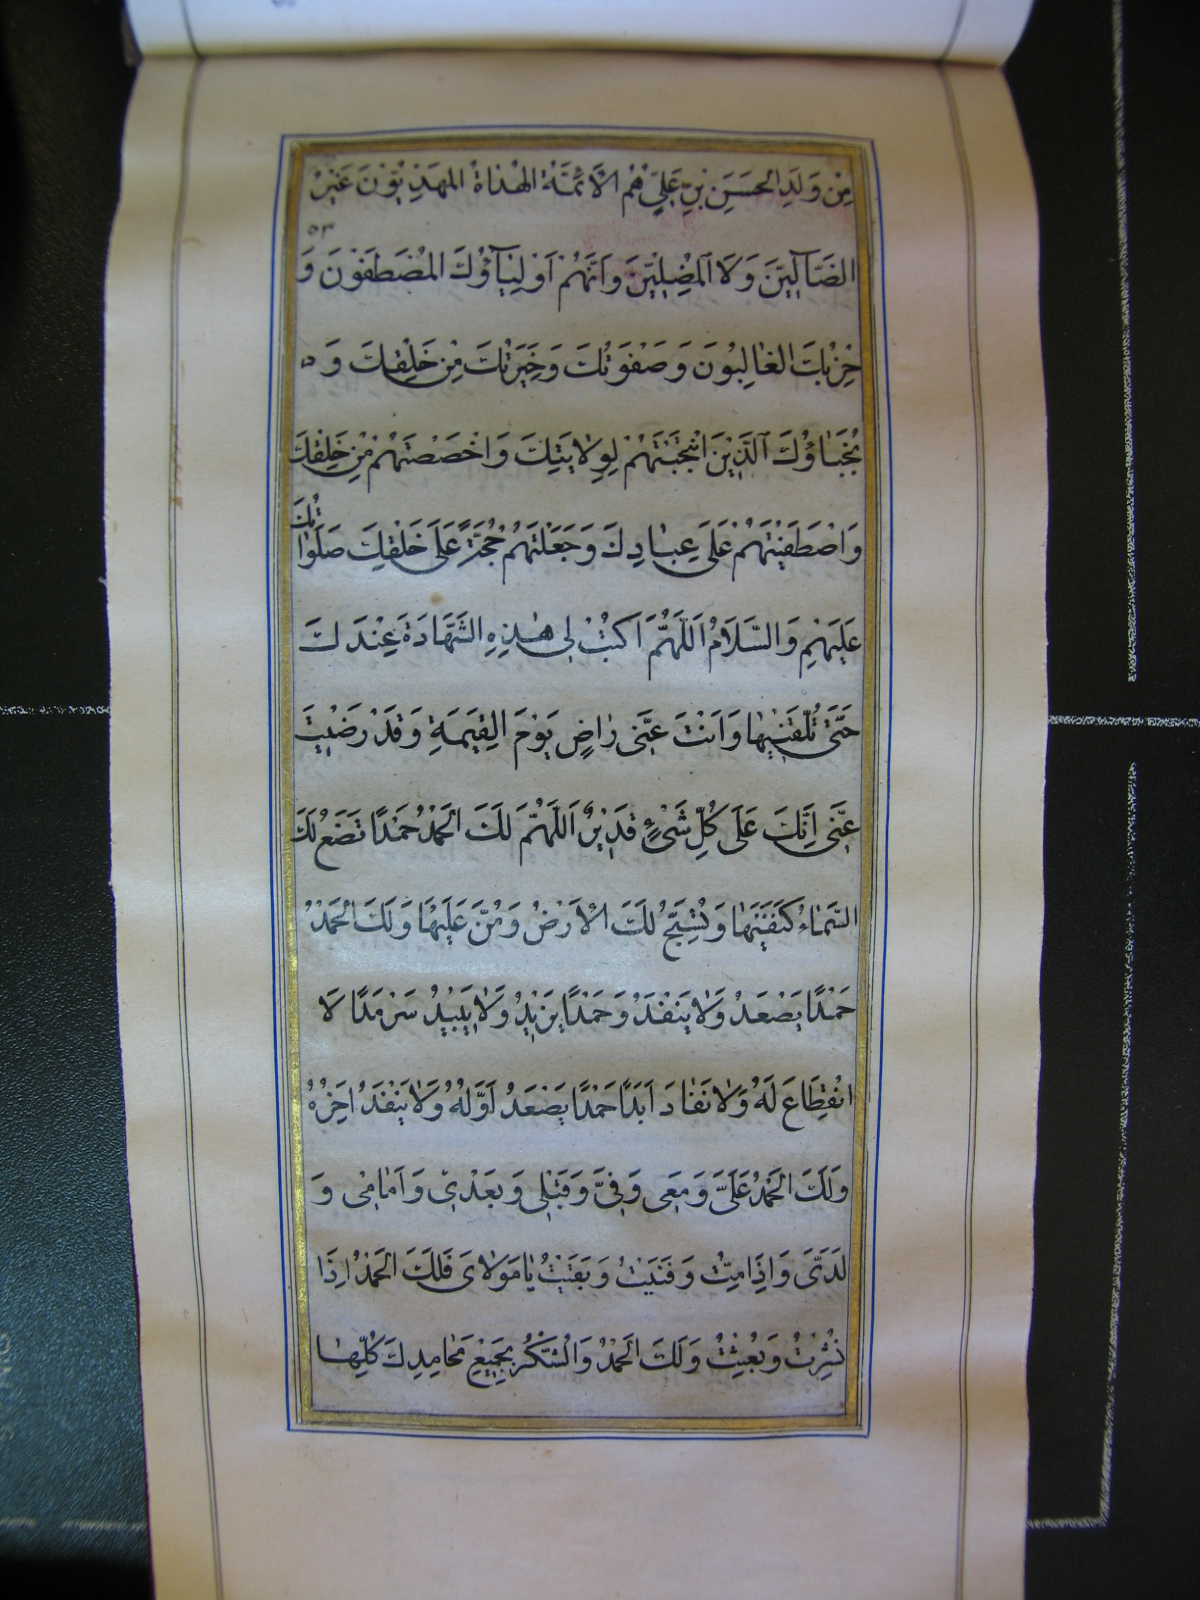 مِنْ وَلَدِ الْحُسَيْنِ بْنِ عَلِيٍّ هُمُ الْاَئِمَّةُ الْهُدٰاةُ الْمَهْدِيُّونَ غَيْرُ
٥٣
الضّٰآلّينَ وَلَا الْمُضِلّينَ وَاَنَّهُمْ اَوْلِيٰآؤُكَ الْمُصْطَفَوْنَ وَ
حِزْبُكَ الْغٰالِبُونَ وَصَفْوَتُكَ وَخِيَرَتُكَ مِنْ خَلْقِكَ وَ
نُجَبٰاؤُكَ الَّذينَ انْتَجَبْتَهُمْ لِوِلٰايَتِكَ وَاخْصَصْتَهُمْ مِنْ خَلْقِكَ
وَاصْطَفَيْتَهُمْ عَلىٰ عِبٰادِكَ وَجَعَلْتَهُمْ حُجَّةً عَلىٰ خَلْقِكَ صَلَوٰاتُكَ
عَلَيْهِمْ وَالسَّلٰامُ اَللّٰهُمَّ اكْتُبْ لى هٰذِهِ الشَّهٰادَةَ عِنْدَكَ
حَتّىٰ تُلَقِّنَنيهٰا وَاَنْتَ عَنّى رٰاضٍ يَوْمَ الْقِيٰمَةِ وَقَدْ رَضيتَ
عَنّى اِنَّكَ عَلىٰ كُلِّ شَىْءٍ قَديرٌ اَللّٰهُمَّ لَكَ الْحَمْدُ حَمْدًا تَضَعُ لَكَ
السَّمٰاءُ كَنَفَيْهٰا وَتُسَبِّحُ لَكَ الْاَرْضُ وَمَنْ عَلَيْهٰا وَلَكَ الْحَمْدُ
حَمْدًا يَصْعَدُ وَلٰا يَنْفَدُ وَحَمْدًا يَزيدُ وَلٰا يَبيدُ سَرْمَدًا لٰا
انْقِطٰاعَ لَهُ وَلٰا نَفٰادَ اَبَدًا حَمْدًا يَصْعَدُ اَوَّلُهُ وَلٰا يَنْفَدُ اٰخِرُهُ
وَلَكَ الْحَمْدُ عَلَىَّ وَمَعى وَفِىَّ وَقَبْلى وَبَعْدى وَاَمٰامى وَ
لَدَىَّ وَاِذٰا مِتُّ وَفَنيتُ وَبَقيتُ يٰا مَوْلٰاىَ فَلَكَ الْحَمْدُ اِذٰا
نُشِرْتُ وَبُعِثْتُ وَلَكَ الْحَمْدُ وَالشُّكْرُ بِجَميعِ مَحٰامِدِكَ كُلِّهٰا